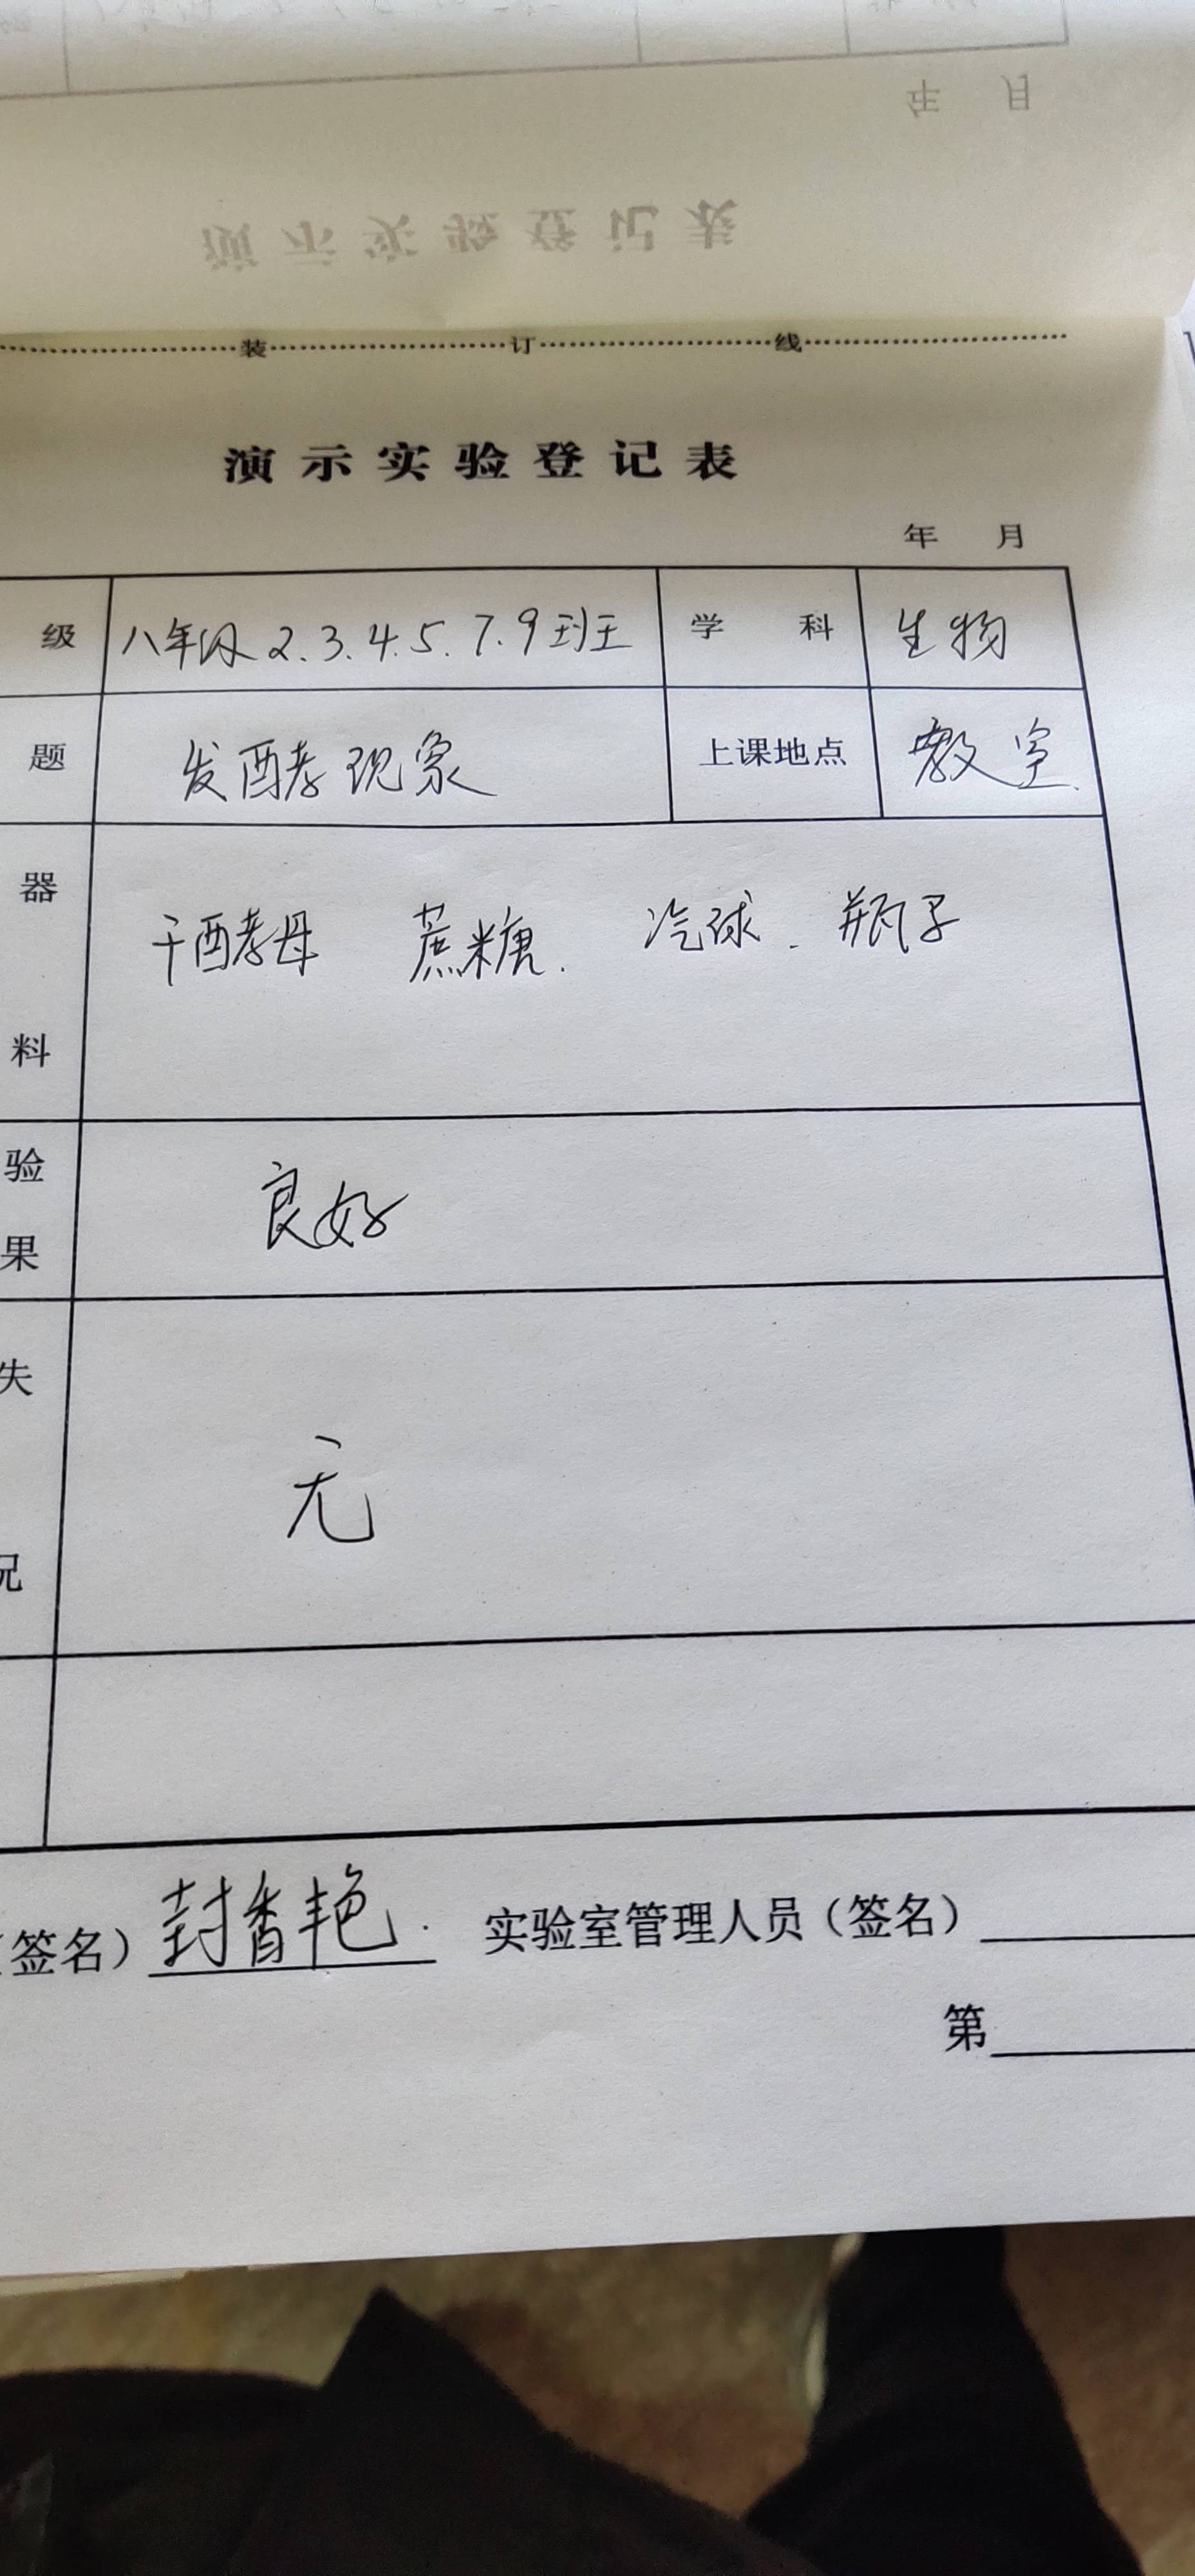 年 月
演示实验登记表
装 订 线
演示实验登记表
年 月
级 八年级2.3.4.5.7.9班 学 科 生物
题 发酵现象 上课地点 教室
器
干酵母 蔗糖. 汽球. 瓶子
料
验
良好
果
失
无
况
(签名) 封香艳. 实验室管理人员(签名)
第